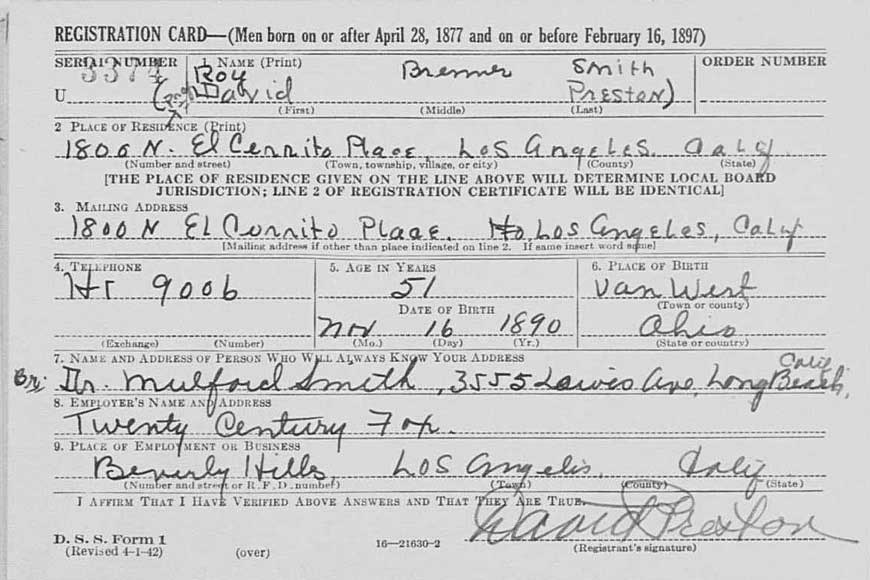 REGISTRATION CARD—(Men born on or after April 28, 1877 and on or before February 16, 1897)
SERIAL NUMBER 1. NAME (Print) ORDER NUMBER
3374 Roy Bremner Smith
U (David Preston)
(First) (Middle) (Last)
2 PLACE OF RESIDENCE (Print)
1800 N. El Cerrito Place, Los Angeles. Calif
(Number and street) (Town, township, village, or city) (County) (State)
[THE PLACE OF RESIDENCE GIVEN ON THE LINE ABOVE WILL DETERMINE LOCAL BOARD
JURISDICTION; LINE 2 OF REGISTRATION CERTIFICATE WILL BE IDENTICAL]
3. MAILING ADDRESS
1800 N El Cerrito Place. Los Angeles, Calif
[Mailing address if other than place indicated on line 2. If same insert word same]
4. TELEPHONE 5. AGE IN YEARS 6. PLACE OF BIRTH
9006 51 Van Wert
(Town or county)
DATE OF BIRTH
Nov 16 1890 Ohio
(Exchange) (Number) (Mo.) (Day) (Yr.) (State or country)
7. NAME AND ADDRESS OF PERSON WHO WILL ALWAYS KNOW YOUR ADDRESS
Calif
Dr. Mulford Smith, 3555 Lewis Ave, Long Beach,
8. EMPLOYER'S NAME AND ADDRESS
Twenty Century Fox.
9. PLACE OF EMPLOYMENT OR BUSINESS
Beverly Hills, Los Angelis, Calif
(Number and street or R. F. D. number) (Town) (County) (State)
I AFFIRM THAT I HAVE VERIFIED ABOVE ANSWERS AND THAT THEY ARE TRUE.
David Preston
D. S. S. Form 1
(Revised 4-1-42) (over) 16—21630-2 (Registrant's signature)